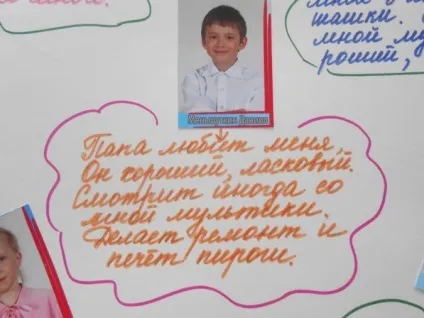 мной
шашки.
мной му
роший,
Папа любит меня.
Он хороший, ласковый.
Смотрит иногда со
мной мультики.
Делает ремонт и
печёт пироги.